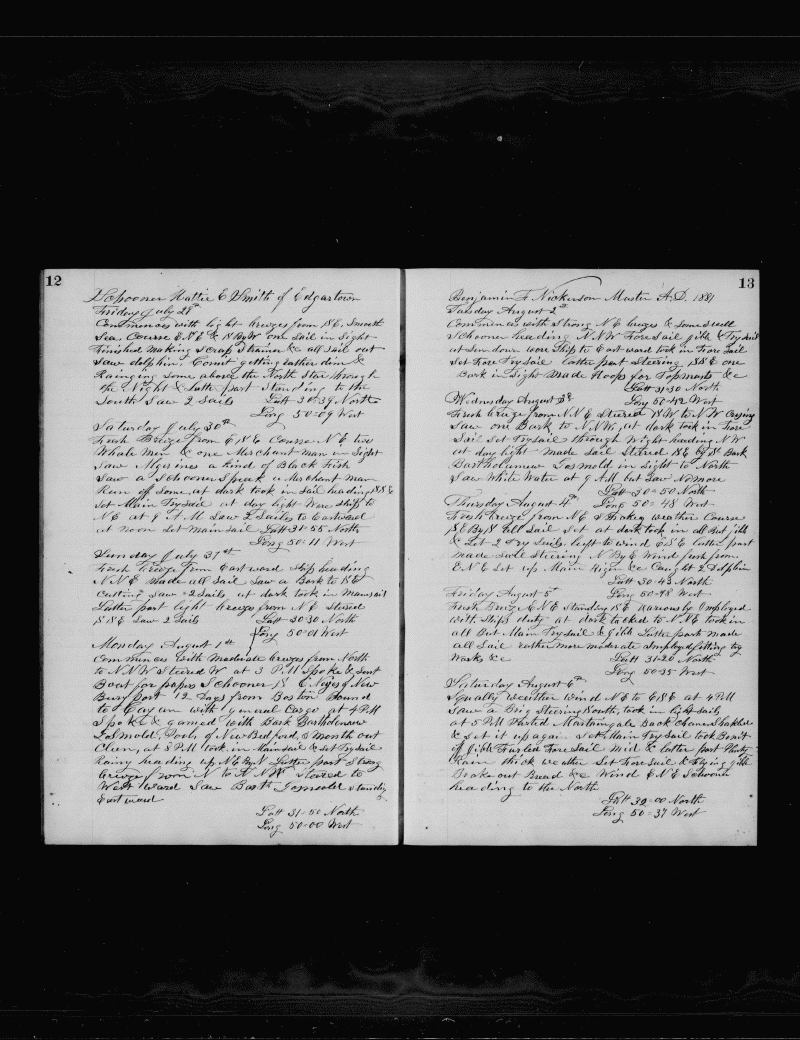 12
Schooner Hattie E Smith of Edgartown
Friday July 29th
Commences with light breezes from S E. Smooth
Sea. Course E N E & S By W one Sail in Sight
Finished making Scrap Strainer &c all Sail out
Saw dolphin. Comit getting rather dim &
Raining some above the North Star through
the Night & Latter part Standing to the
South Saw 2 Sails Latt 30=39 North
Long 50=09 West
Saturday July 30th
Fresh Breeze from E S E Course N E two
Whale men & one Merchant man in Sight
Saw Algerines a kind of Black Fish
Saw a Schooner Speak a Merchant man
Rain of Some, at dark took in Sail heading S S E
Set Main Try Sail at day light Wore Ship to
N E at 9 A.M Saw 2 Sailes to Eastward
at noon Set Main Sail Latt 31=55 North
Long 50=11 West
Sunday July 31st
Fresh breeze from Eastward Ship heading
N N E made all Sail Saw a Bark to S E
Cutting Saw 2 Sails at dark took in mansail
Latter part light breeze from N E Steered
S S E Saw 2 Sails Latt 30=30 North
Long 50=01 West
Monday August 1st
Commences With Moderate breezes from North
to N N W Steered W at 3 P.M Spoke & Sent
Boat for papers Schooner E Noyes of New
Bury Port 12 days from Boston Bound
to Cayan with general Cargo at 4 P.M
Spoke & gamed with Bark Bartholemew
Gosnold, Poole, of New Bedford, 3 month out
Clean, at 8 P.M took in Mainsail & Set Try Sail
Rainy heading up N E By N Latter part Strong
breeze from N to N N W Steered to
Westward Saw Barth Gosnold Standing
Eastward
Latt 31=50 North
Long 50=00 West
13
Benjamin F. Nickerson Master A.D. 1881
Tuesday August 2d
Commences with Strong N E breeze & Some Swell
Schooner heading N N W Fore Sail jibb & Try Sail
at Sun down wore Ship to Eastward took in Fore Sail
Set Fore Try Sail latter part Steering S S E one
Bark in Sight Made Hoops for Topmasts &c
Latt 31=30 North
Long 50=42 West
Wednesday August 3d
Fresh breeze from N.N.E Steered S W to N W
Saw one Bark to N.N.W, at dark took in Fore
Sail Set Try Sail through Night heading N W
at day light made Sail Steered S E by S Bark
Bartholamew Gosnold in Sight to North
Saw White Water at 9 A.M but Saw No more
Latt 30=50 North
Thursday August 4th Long 50=48 West
Fresh breeze from N E & Flakey weather Course
S E By S till Sun Set at dark took in all but jibb
& Set 2 Try Sails, luft to wind E S E latter part
made Sail Steering N By E Wind fresh from
E N E Set up Main Rigin &c Caught 2 Dolphin
Latt 30=43 North
Friday August 5th Long 50=48 West
Fresh Breeze E N E Standing S E Variously Employed
with Ships duty at dark tacked to N N E took in
all But Main Try Sail & Jibb Latter part made
all Sail rather more moderate Employed fitting try
Works &c Latt 31=20 North
Long 50=35 West
Saturday August 6th
Squally weather wind N E to E S E at 4 P.M
Saw a Brig Steering South, took in light Sails
at 5 P.M Parted Martingale Back Chane Shackle
& Set it up again Set Main Try Sail took Bonit
of Jibb Furled Fore Sail Mid & latter part Plenty
Rain thick weather Set Fore Sail & Flying jibb
Broke out Bread &c Wind E N E Schooner
heading to the North
Latt 32=00 North
Long 50=37 West